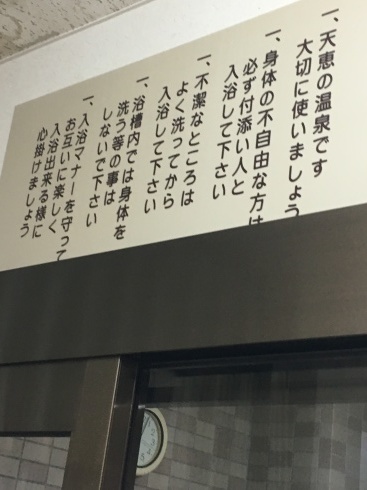 一、天恵の温泉です
大切に使いましょう
一、身体の不自由な方は
必ず付添い人と
入浴して下さい
一、不潔なところは
よく洗ってから
入浴して下さい
一、浴槽内では身体を
洗う等の事は
しないで下さい
一、入浴マナーを守って
お互いに楽しく
入浴出来る様に
心掛けましょう